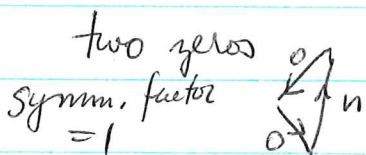 two zeros
symm. factor
= 1
0
n
0